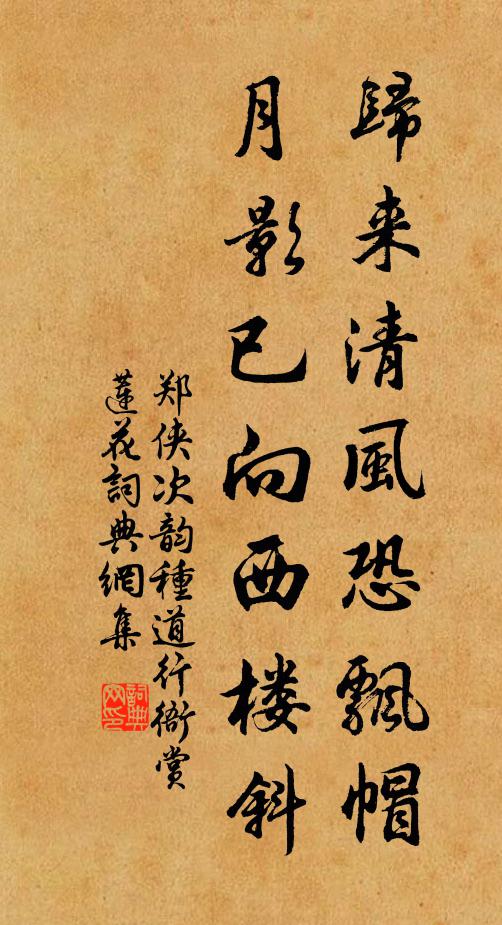 歸来清風恐飄帽
月影已向西楼斜
郑侠次韵種道行衙赏
蓮花詞典網集
詞典网印